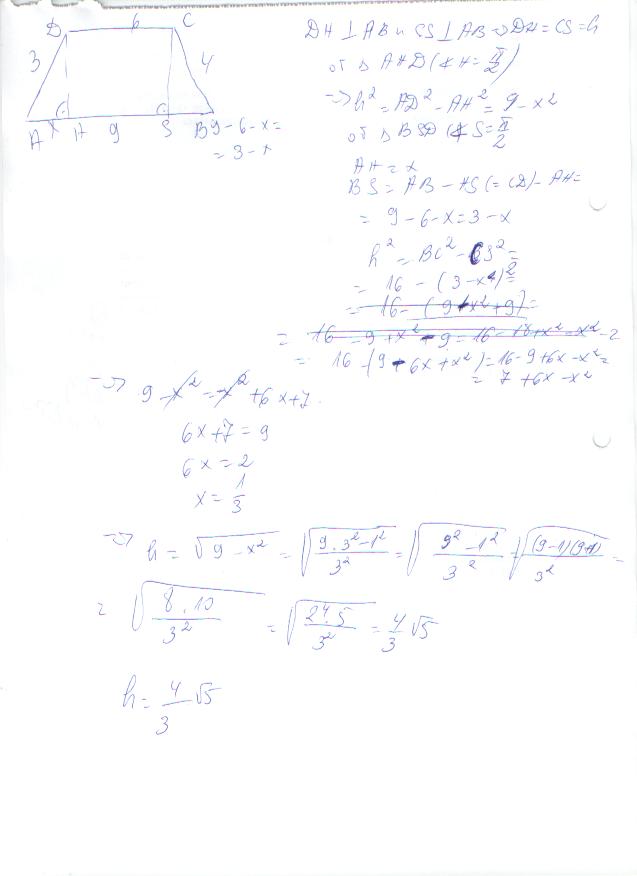 D 6 C
3 4
A x H 9 S B 9-6-x=
= 3-x
DH ⊥ AB и CS ⊥ AB => DH = CS = h
от Δ AHD (∢H = π/2)
=> h² = AD² - AH² = 9 - x²
от Δ BSD (∢S = π/2
AH = x
BS = AB - HS (= CD) - AH =
= 9 - 6 - x = 3 - x
h² = BC² - BS² =
= 16 - (3 - x)² =
= 16 - (9 + x² + 9) =
= 16 - (9 - 6x + x²) = 16 - 9 + 6x - x² =
= 7 + 6x - x²
=> 9 - x² = -x² + 6x + 7.
6x + 7 = 9
6x = 2
x = 1/3
=> h = √(9 - x²) = √((9.3² - 1²)/3²) = √((9² - 1²)/3²) = √((9-1)(9+1)/3²) =
= √(8.10/3²) = √(2⁴.5/3²) = 4/3 √5
h = 4/3 √5